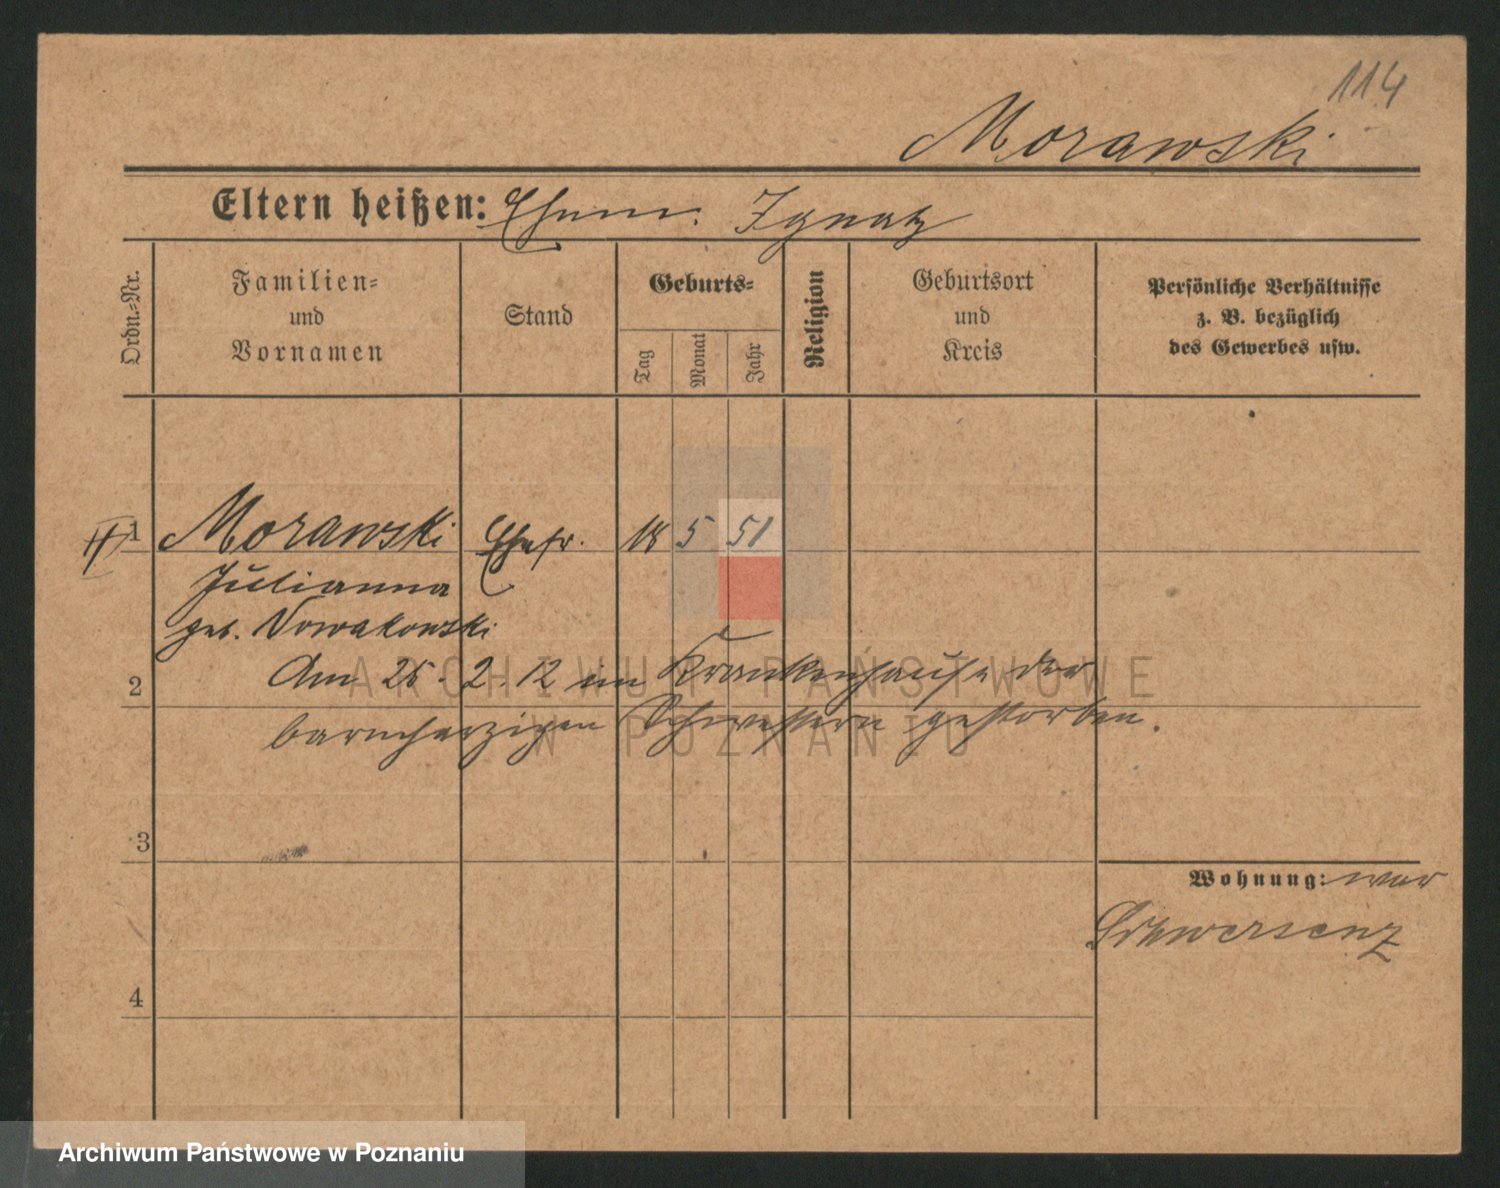 114
Morawski
Eltern heißen: Ehem. Ignatz
Ordn.-Nr.
Familien-
und
Vornamen
Stand
Geburts-
Tag
Monat
Jahr
Religion
Geburtsort
und
Kreis
Persönliche Verhältnisse
z. B. bezüglich
des Gewerbes usw.
1 Morawski Ehefr. 18 5 51
Julianna
geb. Nowakowski
Am 25. 2. 12 im Krankenhause der
2
barmherzigen Schwestern gestorben.
3
Wohnung: war
4
ARCHIWUM PAŃSTWOWE
W POZNANIU
Archiwum Państwowe w Poznaniu